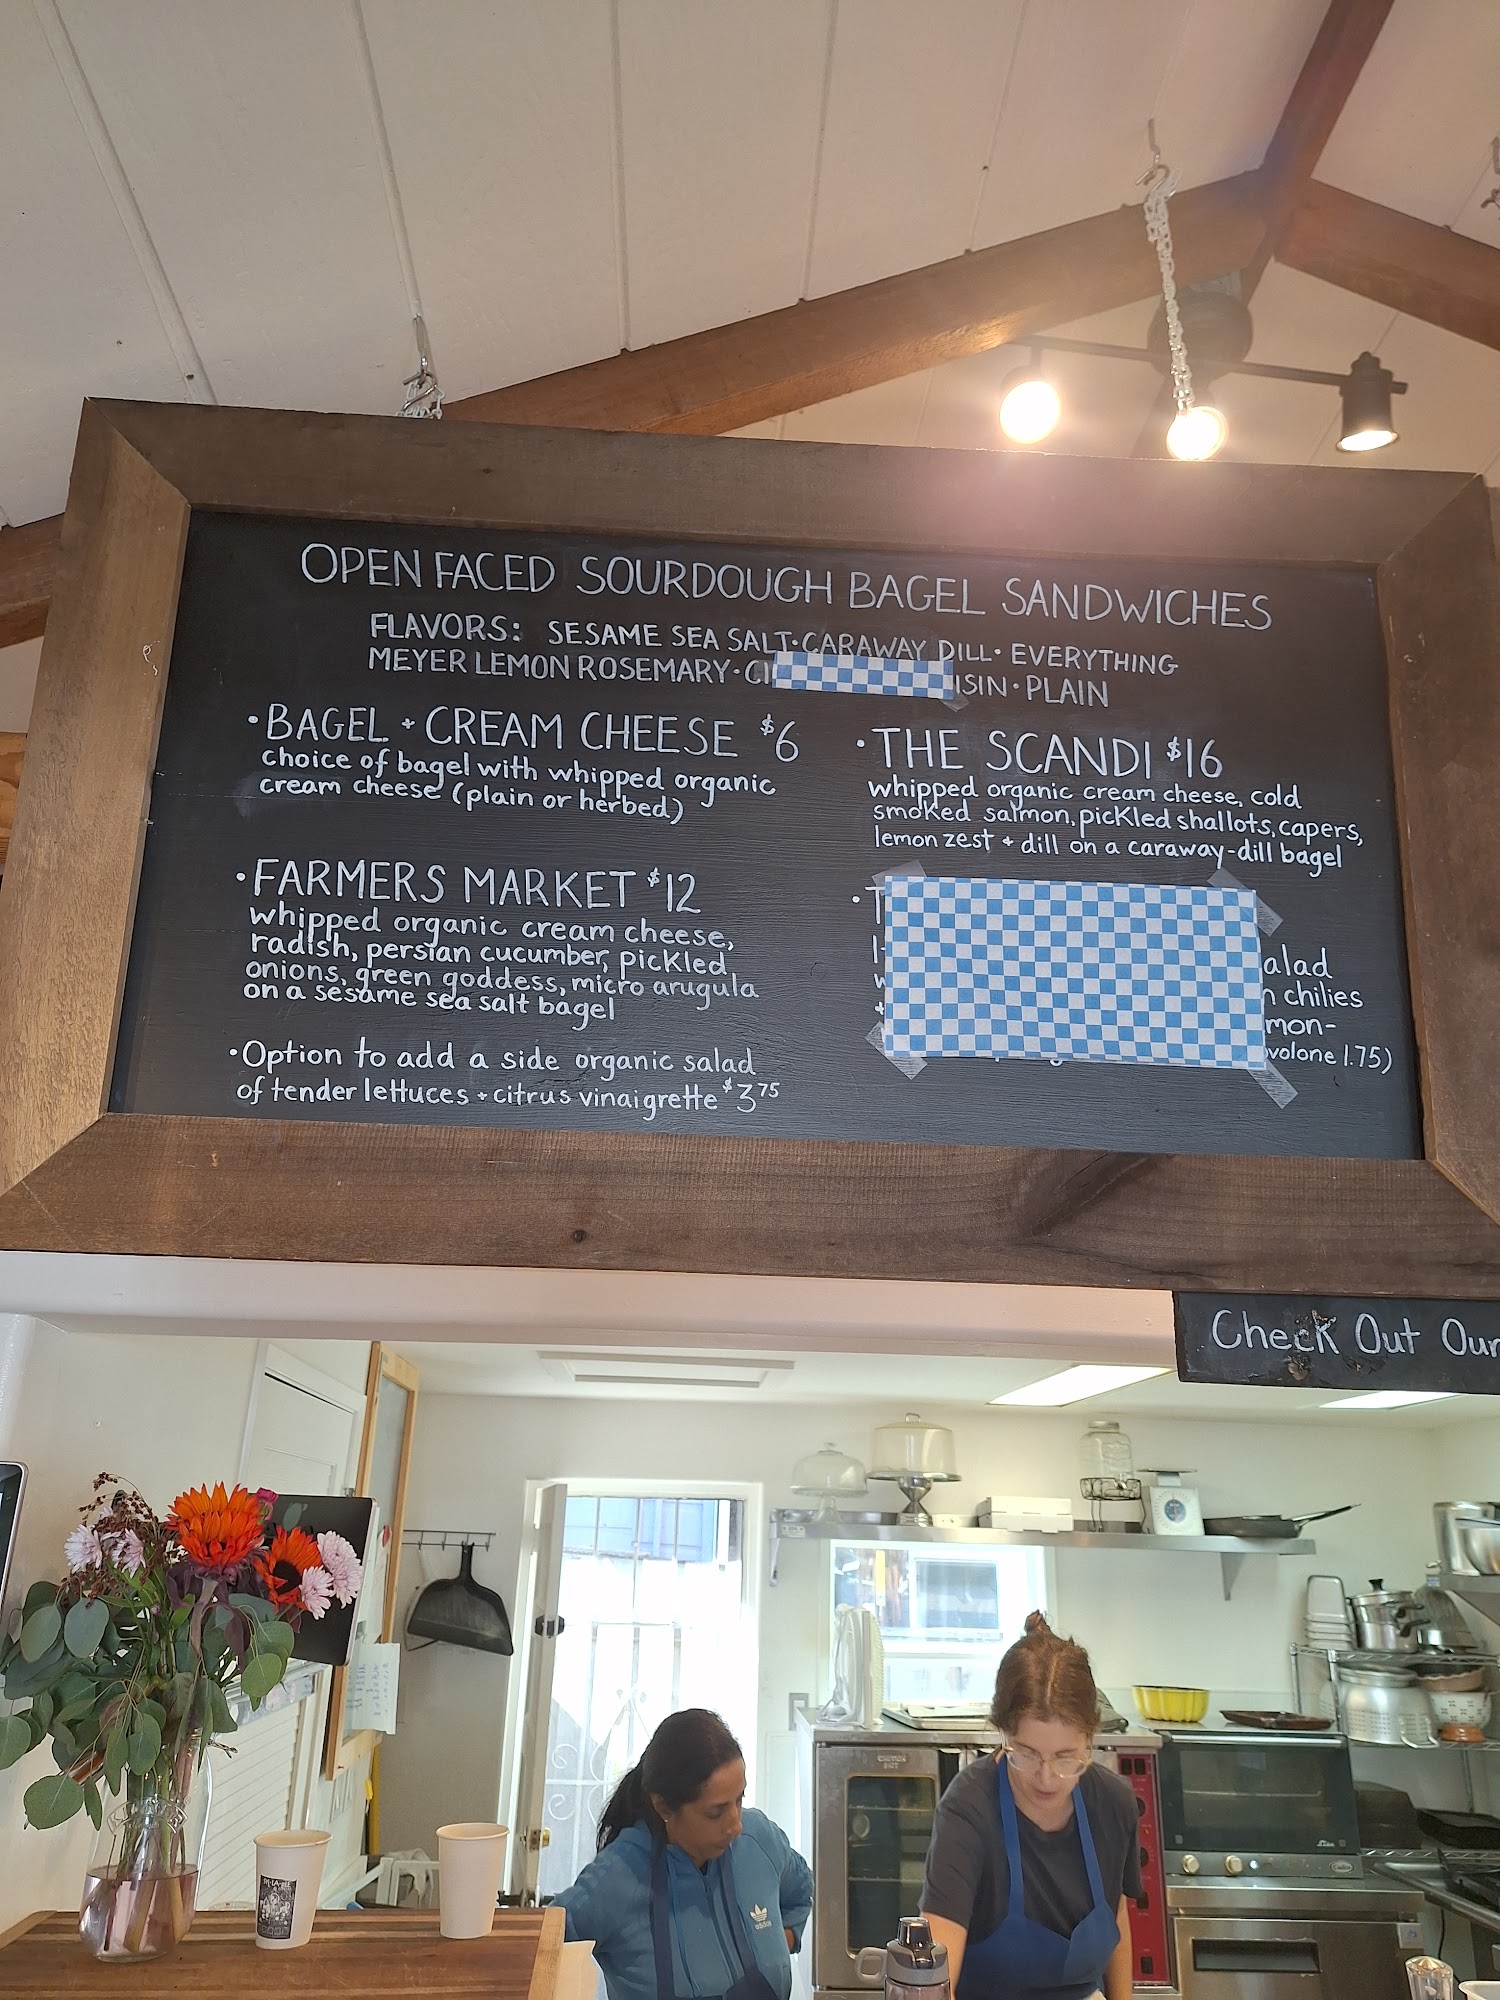 OPEN FACED SOURDOUGH BAGEL SANDWICHES
FLAVORS: SESAME SEA SALT · CARAWAY DILL · EVERYTHING
MEYER LEMON ROSEMARY · PLAIN
· BAGEL + CREAM CHEESE $6
choice of bagel with whipped organic
cream cheese (plain or herbed)
· FARMERS MARKET $12
whipped organic cream cheese,
radish, persian cucumber, pickled
onions, green goddess, micro arugula
on a sesame sea salt bagel
· Option to add a side organic salad
of tender lettuces + citrus vinaigrette $3.75
· THE SCANDI $16
whipped organic cream cheese, cold
smoked salmon, pickled shallots, capers,
lemon zest + dill on a caraway-dill bagel
alad
n chilies
mon-
ovolone 1.75)
Check Out Our
adidas